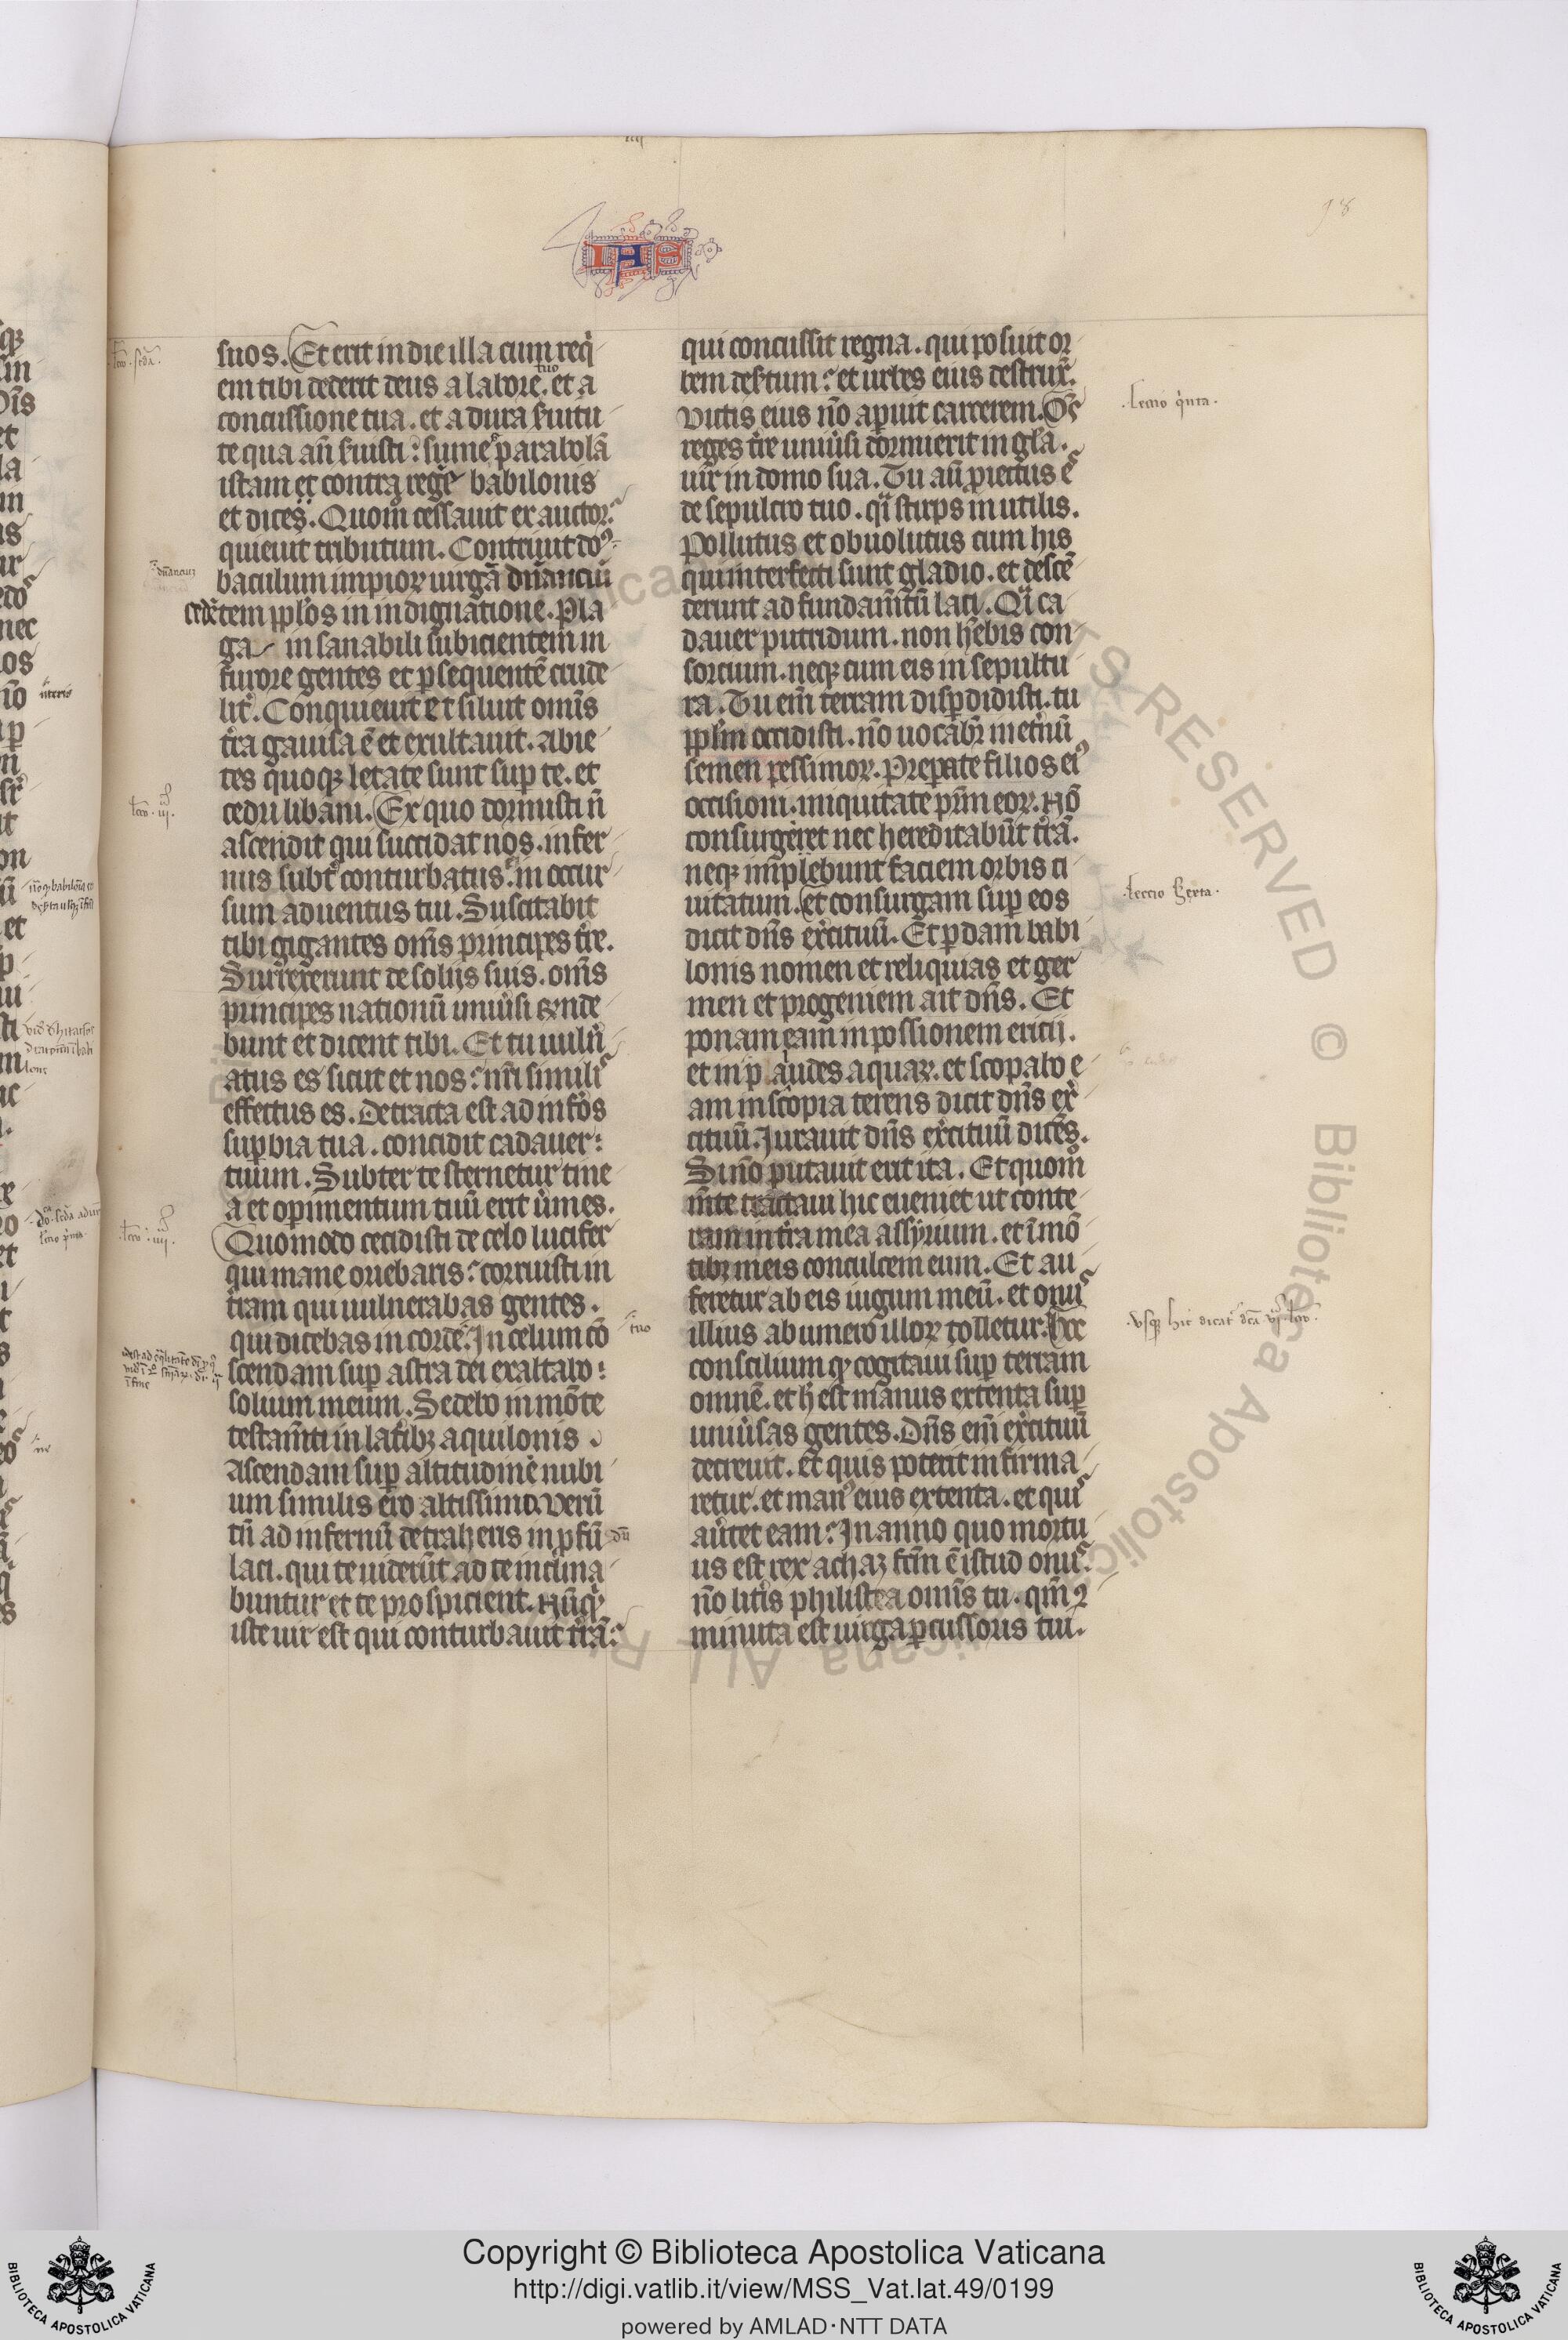 IHS
98
suos. Et erit in die illa cum reqͥ
em tibi dederit deus a labore tuo. et a
concussione tua. et a dura s̾uitu
te qua an̄ s̾uisti: sumes parabolā
istam et contra regē babilonis
et dices. Quom̊ cessauit exactor:
quieuit tributum. Contriuit dn̄s
baculum impioꝝ uirgā dn̄anciū
cede
tem pp̄los in indignatione. Pla
ga insanabili subicientem in
furore gentes et ꝑsequentē crude
lit̾. Conquieuit et siluit omīs
t̾ra gauisa ē et exultauit. Abie
tes quoqꝫ letate sunt suꝑ te. et
cedri libani. Ex quo dormisti n̄
ascendit qui succidat nos. infer
nus subt̾ conturbatus ē in occur
sum aduentus tui. Suscitabit
tibi gigantes omīs principes t̾re.
Surrexerunt de solijs suis. omīs
principes nationū uniu̾si respnde
bunt et dicent tibi. Et tu uuln̾
atus es sicut et nos: nr̄i similis
effectus es. Detracta est ad inf̾os
suꝑbia tua. concidit cadauer:
tuum. Subter te sternetur tine
a et operimentum tuū erit u̾mes.
Quomodo cecidisti de celo lucifer
qui mane oriebaris: corruisti in
t̾ram qui uulnerabas gentes.
qui dicebas in corde: In celum cō
scendam suꝑ astra dei exaltabo:
solium meum. Sedebo in mōte
testam̄ti in lat̾ibꝫ aquilonis
Ascendam suꝑ altitudinē nubi
um similis ero altissimo. Verū
tn̄ ad infernū detraheris in ꝓfūdū
laci. qui te uiderūt ad te inclina
buntur et te prospicient. Nūqͥd
iste uir est qui conturbauit t̾rā:
qui concussit regna. qui posuit or
bem des̾tum: et urbes eius destrux̾.
vinctis eius nō aperuit carcerem. Om̄s
reges t̾re uniu̾si dormierūt in gl̄a.
uir in domo sua. Tu aū ꝓiectus es
de sepulcro tuo. qͣsi stirps inutilis.
Pollutus et obuolutus cum his
qui interfecti sunt gladio. et descē
derunt ad fundam̄tū laci. Qͣsi ca
dauer putridum. non h̄ebis con
sortium. neqꝫ cum eis in sepultu
ra. Tu em̄ terram disꝑdidisti. tu
pp̄lm occidisti. nō uocabit̾ in et̾nū
semen pessimoꝝ. Preparate filios eiꝰ
occisioni. iniquitate pr̄m eoꝝ. Nō
consurgēt nec hereditabūt t̾rā.
neqꝫ implebunt faciem orbis ci
uitatum. Et consurgam suꝑ eos
dicit dn̄s ex̾cituū. Et ꝑdam babi
lonis nomen et reliquias et ger
men et progeniem ait dn̄s. Et
ponam eam in possionem ericij.
et in paludes aquaꝝ. et scopabo e
am in scopia terens dicit dn̄s ex̾
cituū. Iurauit dn̄s ex̾cituū dicēs.
Si nō putaui erit ita. Et quom̊
m̄te tractaui hic eueniet ut conte
ram in t̾ra mea assyrium. et in mō
tibꝫ meis conculcem eum. Et au
feretur ab eis iugum meū. et onus
illius ab umero illoꝝ tolletur. Hoc
consilium qd̄ cogitaui suꝑ terram
omnē. et h̄ est manus extenta suꝑ
uniu̾sas gentes. Dn̄s em̄ ex̾cituū
decreuit. et quis poterit infirma
retur. et manꝰ eius extenta. et quis
au̾tet eam: In anno quo mortu
us est rex achaz fc̄m ē istud onus.
nō let̾is philistea omīs tu. qm̄ ꝯ
minuta est uirga ꝑcussoris tui.
dn̄anciuꝫ
tuo
lectio qͥnta.
lectio sexta.
vsqꝫ hic dicat̾ dca vj lcō.
BIBLIOTECA APOSTOLICA VATICANA
Copyright © Biblioteca Apostolica Vaticana
http://digi.vatlib.it/view/MSS_Vat.lat.49/0199
powered by AMLAD·NTT DATA
BIBLIOTECA APOSTOLICA VATICANA